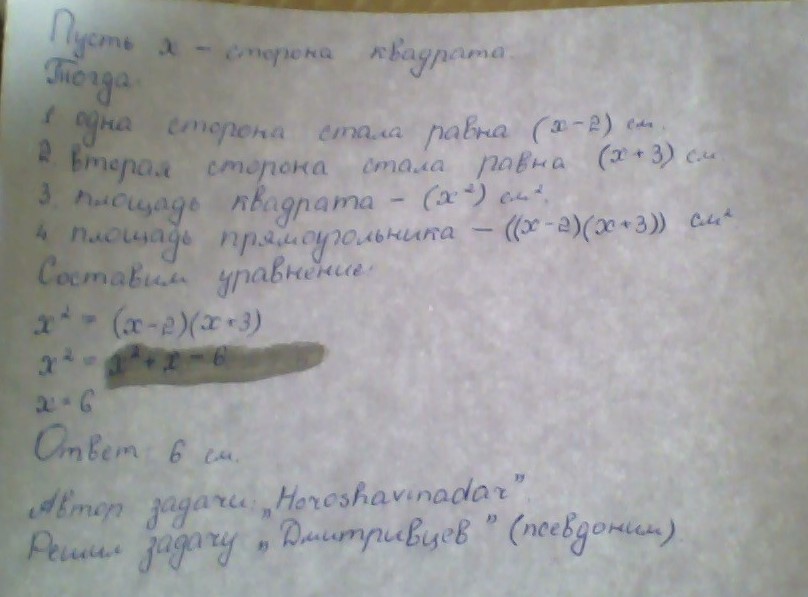 Пусть х – сторона квадрата.
Тогда:
1. одна сторона стала равна (х-2) см.
2. вторая сторона стала равна (х+3) см
3. площадь квадрата – (х²) см².
4. площадь прямоугольника – ((х-2)(х+3)) см²
Составим уравнение:
х² = (х-2)(х+3)
х² = х²+х-6
х=6
Ответ: 6 см.
Автор задачи: „Horoshavinadar”.
Решил задачу „Дмитривцев” (псевдоним).